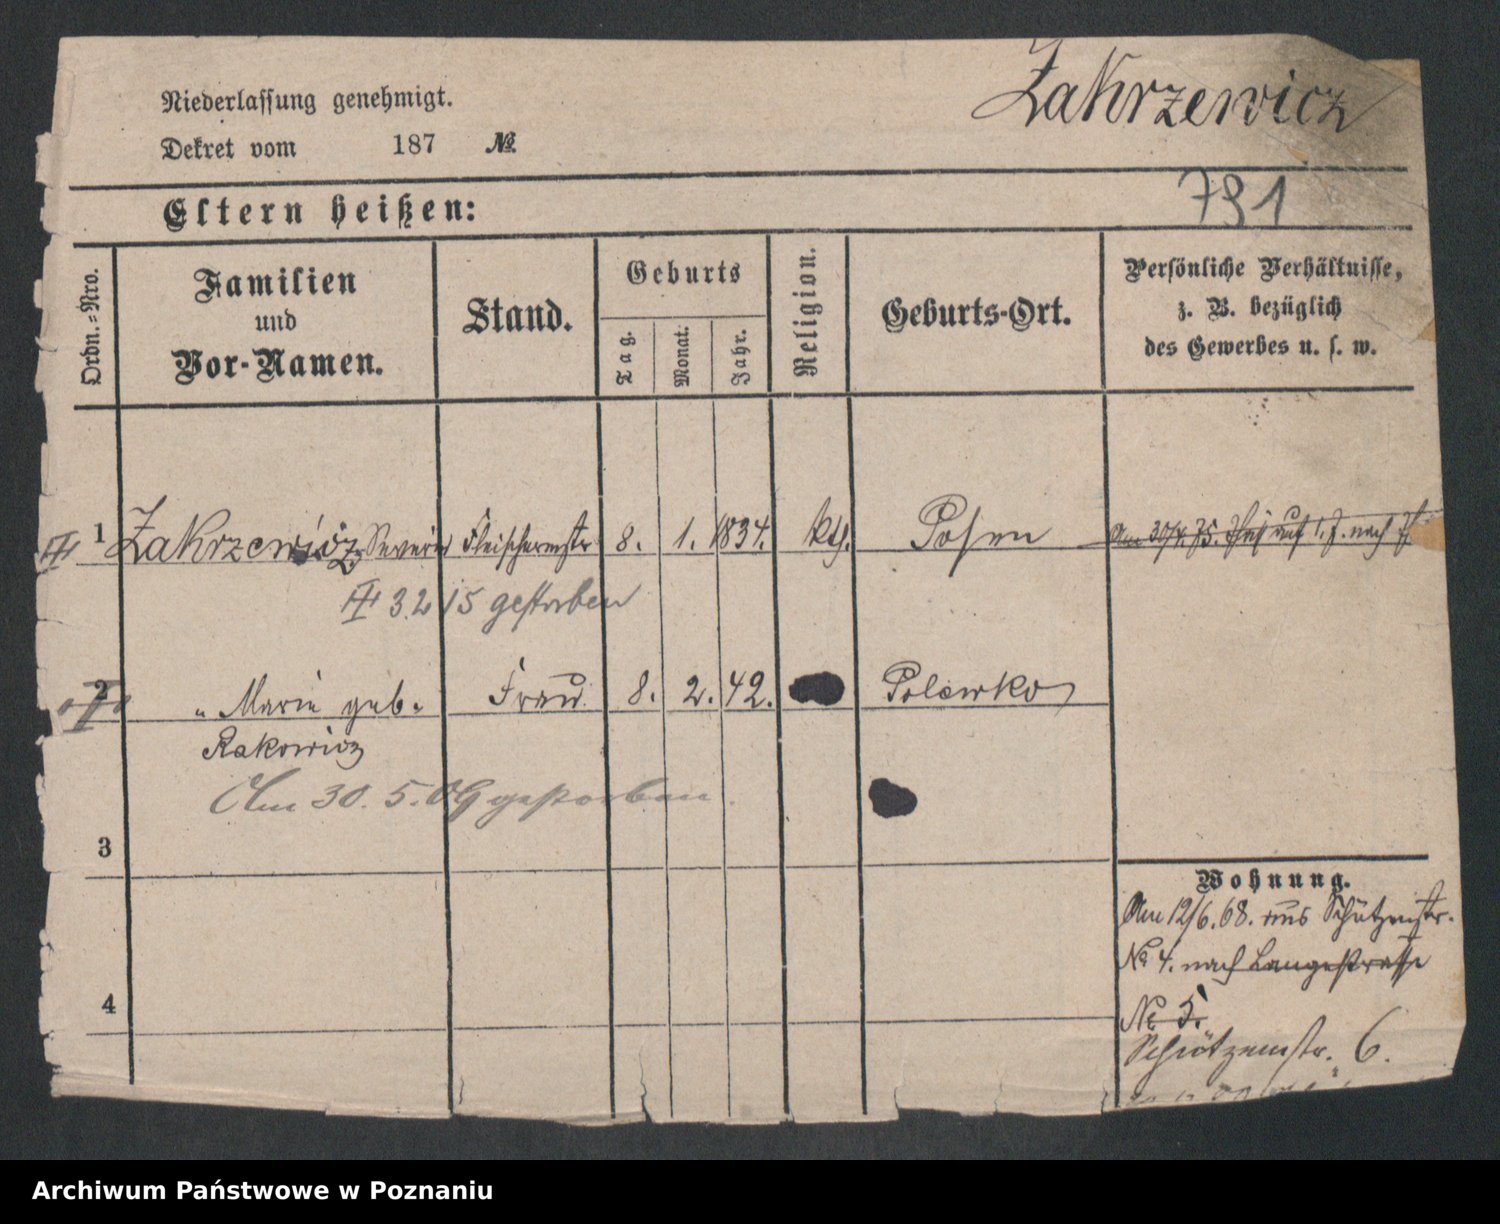 Zakrzewicz
Niederlassung genehmigt.
Dekret vom 187 №.
791
Eltern heißen:
Ordn.-Nro.
Familien und Vor-Namen.
Stand.
Geburts
Tag.
Monat.
Jahr.
Religion.
Geburts-Ort.
Persönliche Verhältnisse,
z. B. bezüglich
des Gewerbes u. s. w.
III 1 Zakrzewicz, Severin Fleischermstr 8. 1. 1834. kth. Posen Am 30/4. 75. auf nach
III 3 2 15 gestorben
2 " Marie geb. Frau 8. 2. 42. Polewko
Rakowicz
Am 30. 5. 09 gestorben.
3
4
Wohnung.
Am 12/6. 68. aus Schützenstr.
No 4. nach Langestrasse
No 5.
Schützenstr. 6.
Archiwum Państwowe w Poznaniu